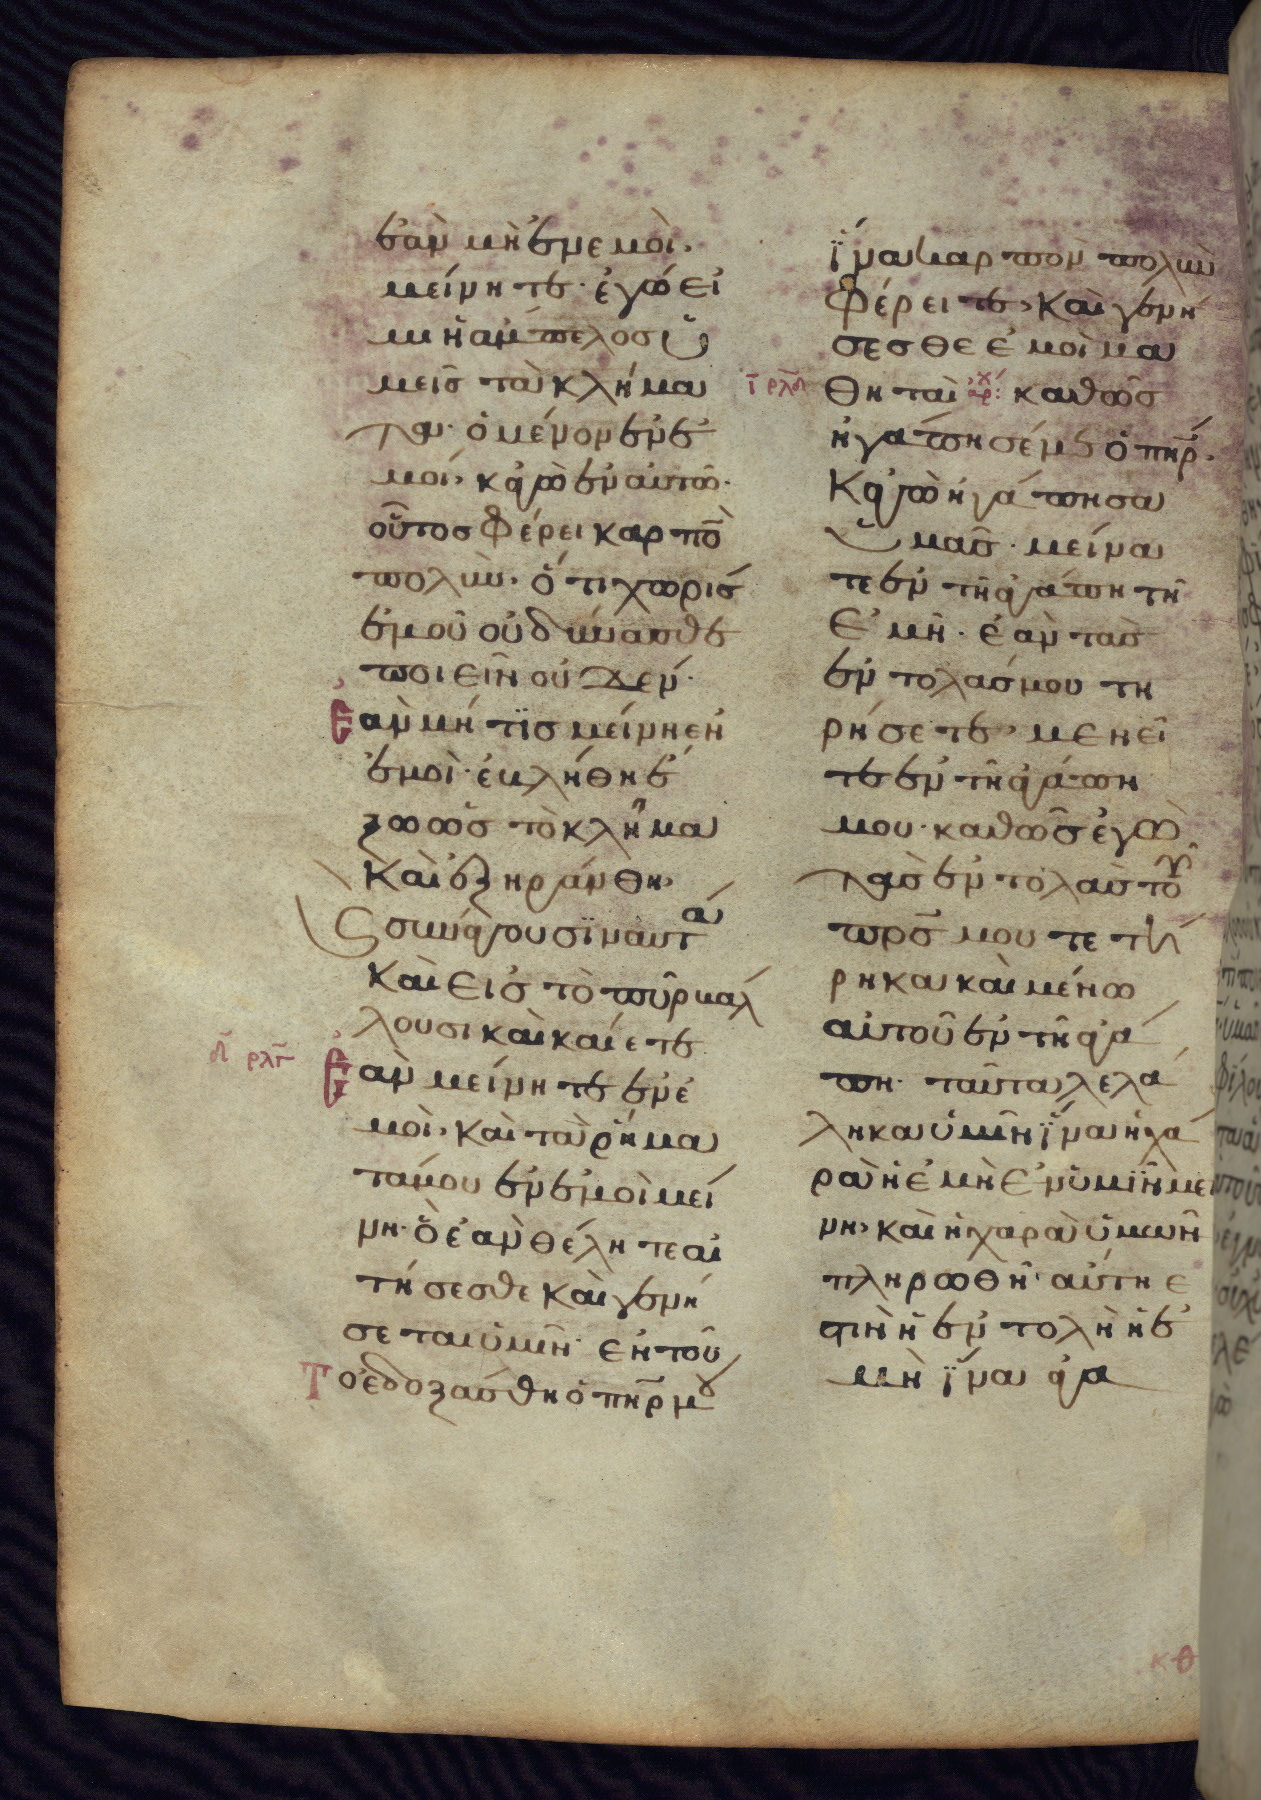 ἐὰν μὴ ἐν ἐμοὶ·
μείνητε· ἐγώ εἰ
μι ἡ ἄμπελος ὑ
μεῖς τὰ κλήμα
τα· ὁ μένον ἐν ἐ
μοί· κἀγὼ ἐν αὐτῶ·
οὗτος φέρει καρπὸ̅
πολὺν· ὅτι χωρὶς
ἐμοῦ οὐ δύνασθε
ποιεῖν οὐδέν·
Ἐὰν μή τϊς μείνη ἐν
ἐμοὶ· ἐκλήθη ἐ
ξω ὡς τὸ κλῆμα
Καὶ ἐξηράνθη·
Ϛ συνάγουσϊν αὐτὰ
Καὶ εἰς τὸ πῦρ βάλ
λουσι καὶ καίετε
δ̅ ρλγ̅
Ἐὰν μείνητε ἐν ἐ
μοὶ· καὶ τὰ ῥήμα
τά μου ἐν ἐμοὶ μεί
νη· ὃ ἐὰν θέλητε αἰ
τήσεσθε καὶ γενή
σεται ὑμῖν· ἐν τού
Τω ἐδοξάσθη ὁ πη̅ρ μου
ἵνα καρπὸν πολὺν
φέρειτε· καὶ γενή
σεσθε ἐμοὶ μα
ι̅ ρλδ̅
θηταὶ αρχ: καθὼς
ἠγάπησέ με ὁ πη̅ρ·
Κἀγὼ ἠγάπησα
ὑμᾶς· μείνα
τε ἐν τῆ ἀγάπη τῆ
Ἐμῆ· ἐὰν τὰς
ἐντολάς μου τη
ρήσετε· μενεῖ
τε ἐν τῆ ἀγάπη
μου· καθὼς ἐγὼ
τὰς ἐντολὰς τοῦ
πρ̅ς μου τετή
ρηκα καὶ μένω
αὐτοῦ ἐν τῆ ἀγά
πη· ταῦτα λελά
ληκα ὑμῖν ἵνα ἡ χα
ρὰ ἡ ἐμὴ ἐν ὑμϊν με
νη· καὶ ἡ χαρὰ ὑμῶν
πληρωθῆ· αὕτη ἐ
στὶν ἡ ἐντολὴ ἡ ἐ
μὴ ἵνα ἀγα
κθ